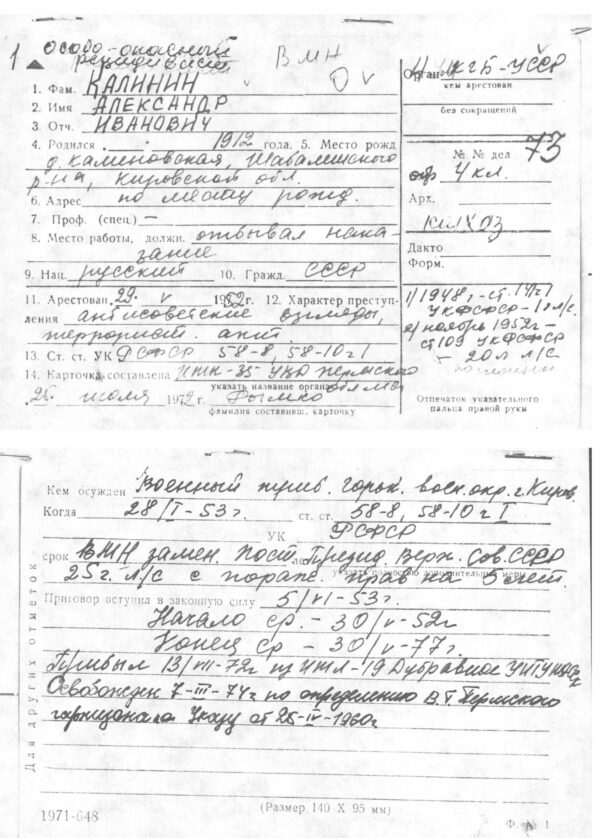 1 особо-опасный
рецидивист
ВМН
1. Фам. КАЛИНИН
2. Имя АЛЕКСАНДР
3. Отч. ИВАНОВИЧ
4. Родился 1912 года. 5. Место рожд
д. Калиновская, Шабалинского
р-на, Кировской обл.
6. Адрес по месту рожд.
7. Проф. (спец.) —
8. Место работы, должн. отбывал нака-
зание
9. Нац. русский 10. Гражд. СССР
11. Арестован 29. V 1952г. 12. Характер преступ-
ления антисоветские взгляды,
террорист. акт
13. Ст. ст. УК РСФСР 58-8, 58-10 ч I
14. Карточка составлена ИТК-35 УВД Пермского
указать название органа области
26. июля 1972 г.
фамилия составивш. карточку
Орган КГБ-УССР
кем арестован
без сокращений
73
№ № дел
4 кл.
Арх.
Дакто
Форм.
1/1948г-ст.
УКРСФСР-1г л/с.
2/ноябрь 1952г-
ст 109 УКРСФСР
- 20л л/с
Отпечаток указательного
пальца правой руки
Кем осужден Военный триб. Горьк. воен. окр. г. Киров
Когда 28/I-53г. ст. ст. 58-8, 58-10 ч I
УК РСФСР
срок ВМН замен. Пост. Презид. Верх. Сов. СССР
указать полностью дополнительные меры
25г. л/с с пораж. прав на 5 лет.
Приговор вступил в законную силу 5/VI-53г.
Начало ср. - 30/V-52г
Конец ср - 30/V-77г.
Прибыл 13/VII-72г из ИТЛ-19 Дубравное УИТУ
Освобожден 7-III-74г по определению В.Т. Пермского
гарнизона по Указу от 25-IV-1960г
Для других отметок
1971-648
(Размер 140 Х 95 мм)
Ф. № 1